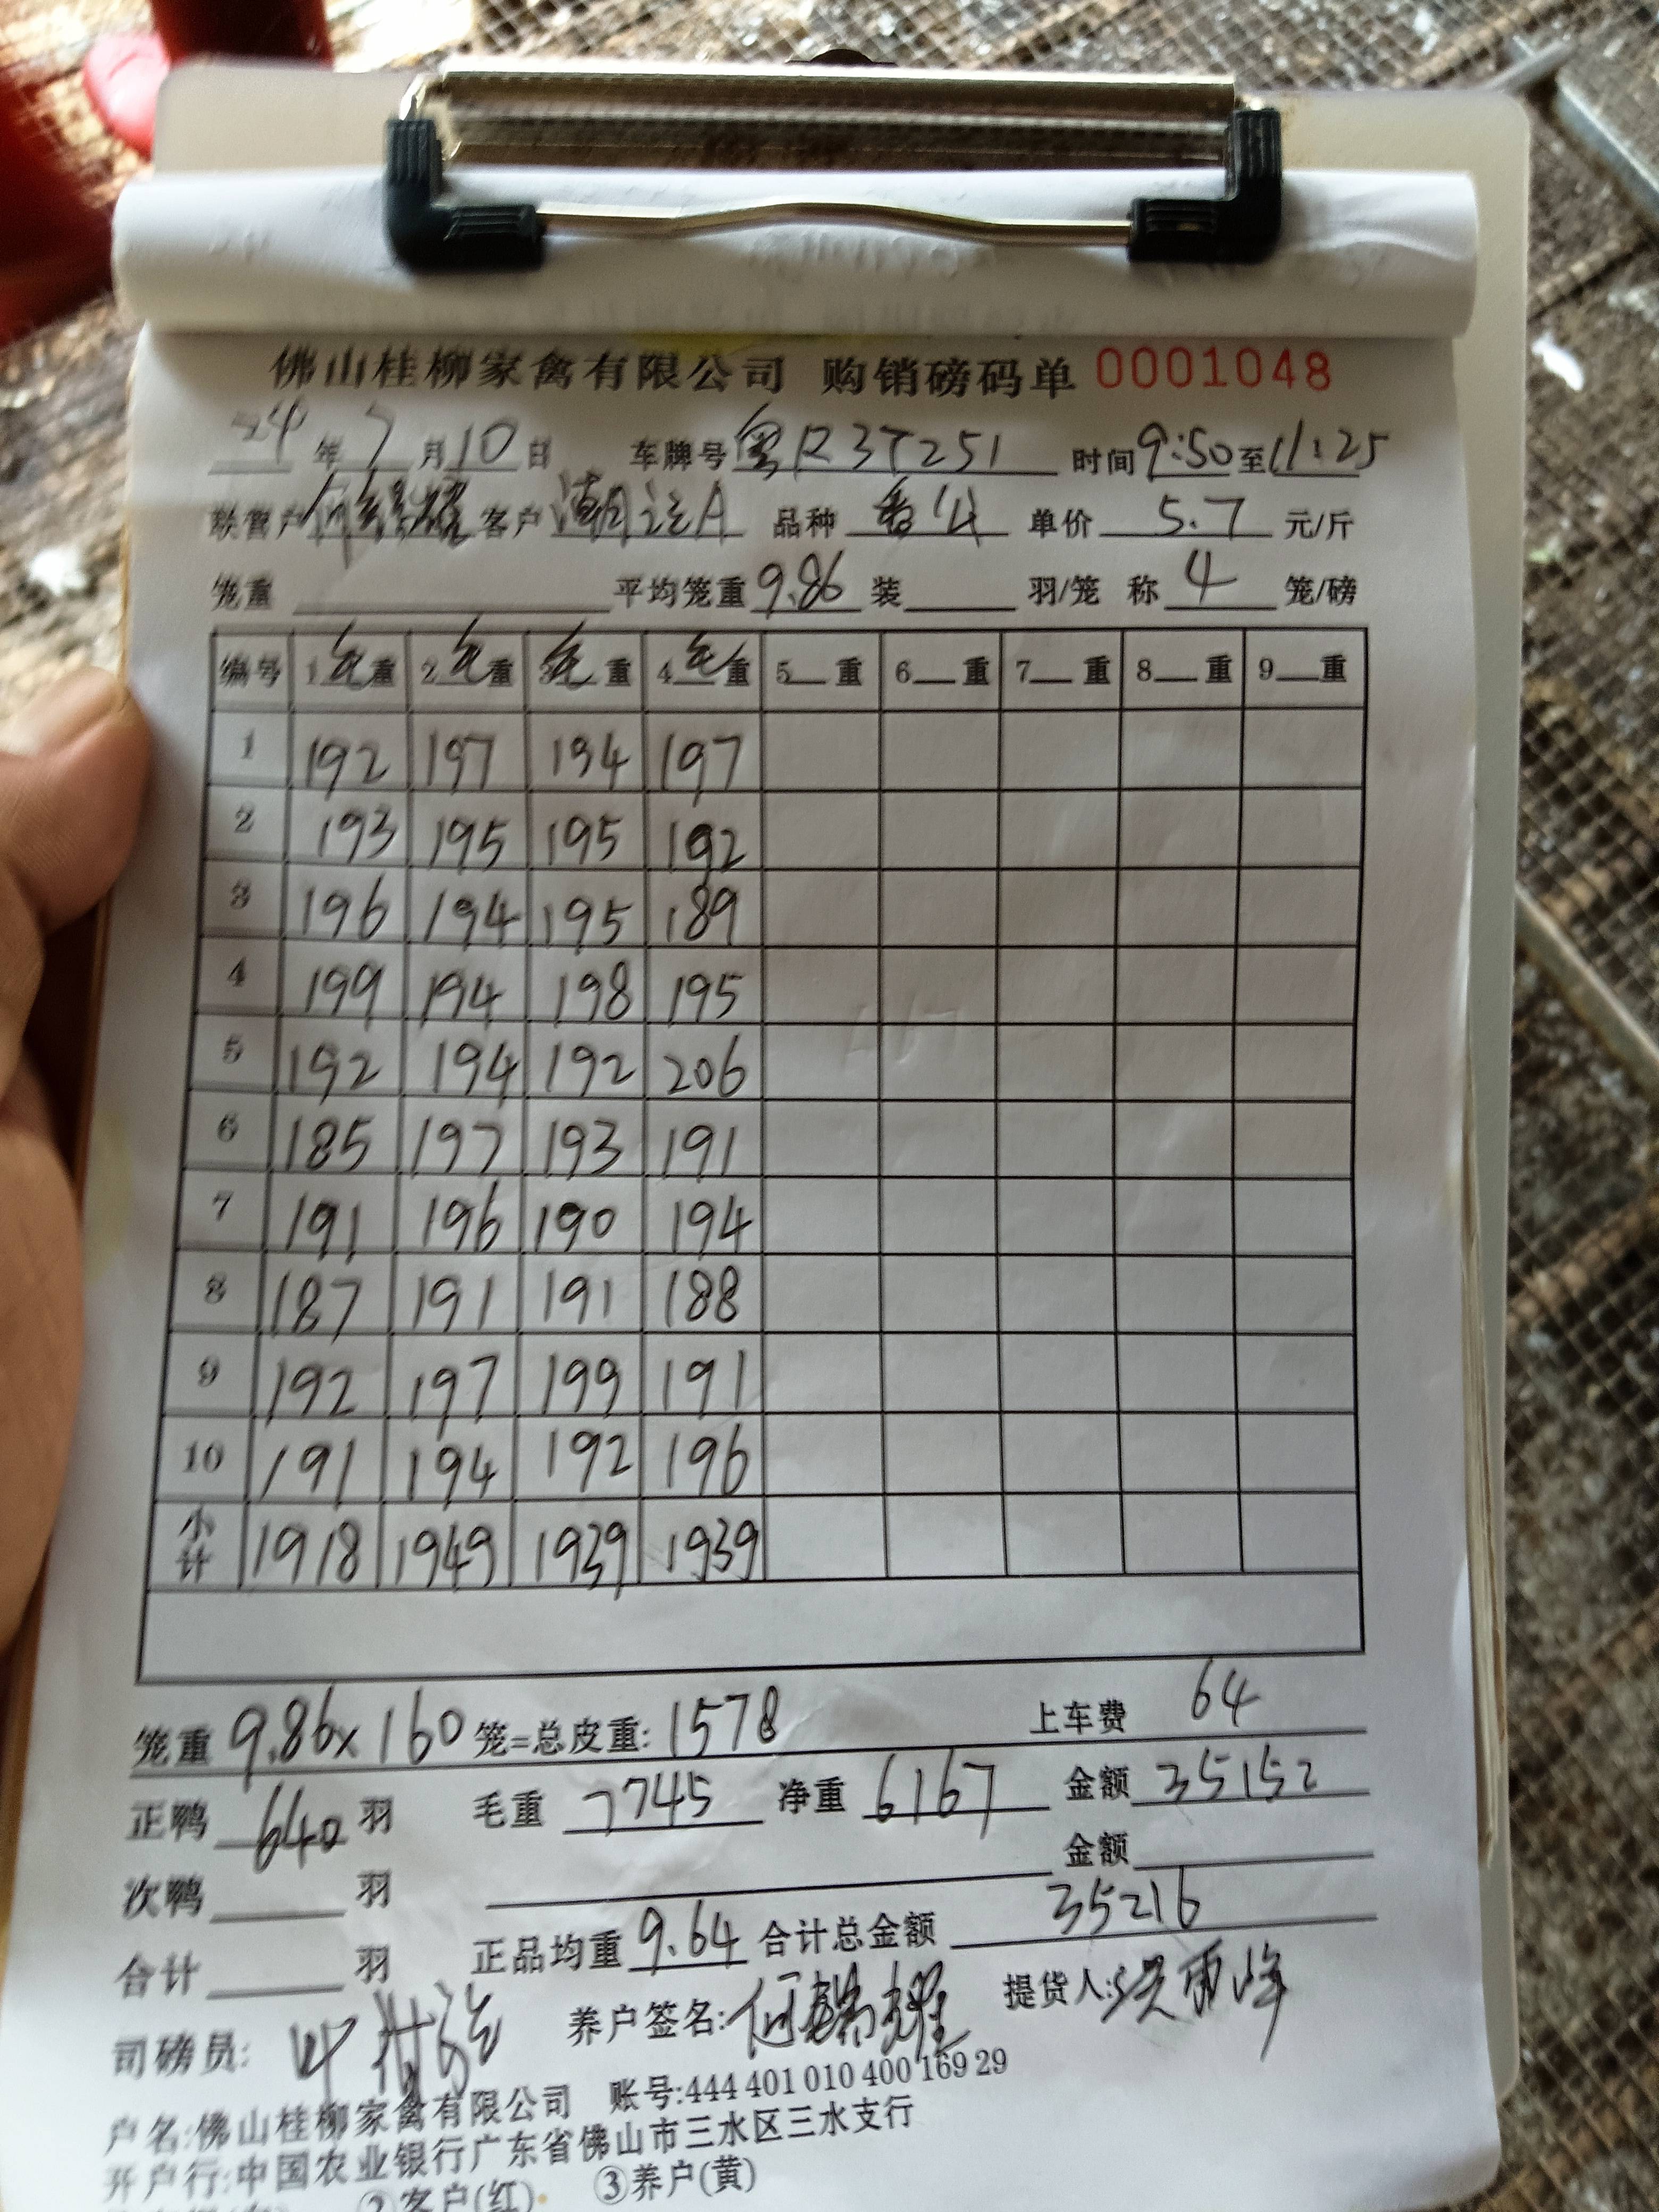 佛山桂柳家禽有限公司 购销磅码单 0001048
24年7月10日 车牌号 粤R3T251 时间9:50至11:25
联营户 客户 A 品种 番公 单价 5.7 元/斤
笼重 平均笼重9.86 装 羽/笼 称 4 笼/磅
编号 1毛重 2毛重 3毛重 4毛重 5 重 6 重 7 重 8 重 9 重
1 192 197 194 197
2 193 195 195 192
3 196 194 195 189
4 199 194 198 195
5 192 194 192 206
6 185 197 193 191
7 191 196 190 194
8 187 191 191 188
9 192 197 199 191
10 191 194 192 196
小计 1918 1949 1939 1939
笼重 9.86×160 笼=总皮重: 1578 上车费 64
正鸭 640 羽 毛重 7745 净重 6167 金额 35152
次鸭 羽 金额
合计 羽 正品均重 9.64 合计总金额 35216
司磅员: 养户签名: 提货人:
户名:佛山桂柳家禽有限公司 账号:444 401 010 400 169 29
开户行:中国农业银行广东省佛山市三水区三水支行
②客户(红) ③养户(黄)